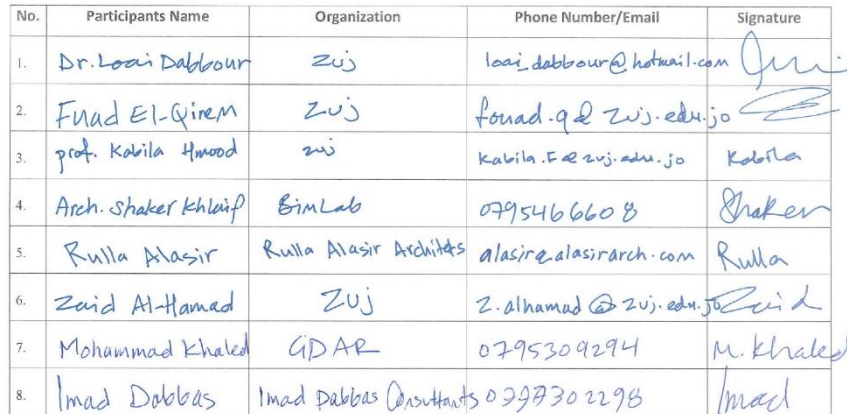 No. Participants Name Organization Phone Number/Email Signature
1. Dr. Loai Dabbour ZUJ loai_dabbour@hotmail.com
2. Fuad El-Qirem ZUJ fouad.q@zuj.edu.jo
3. prof. Kabila Hmood zuj kabila.F@zuj.edu.jo Kabila
4. Arch. Shaker Khlaif BimLab 0795466608 Shaker
5. Rulla Alasir Rulla Alasir Architets alasir@alasirarch.com Rulla
6. Zaid Al-Hamad ZUJ z.alhamad@zuj.edu.jo Zaid
7. Mohammad Khaled GDAR 0795309294 M. Khaled
8. Imad Dabbas Imad Dabbas Consultants Imad